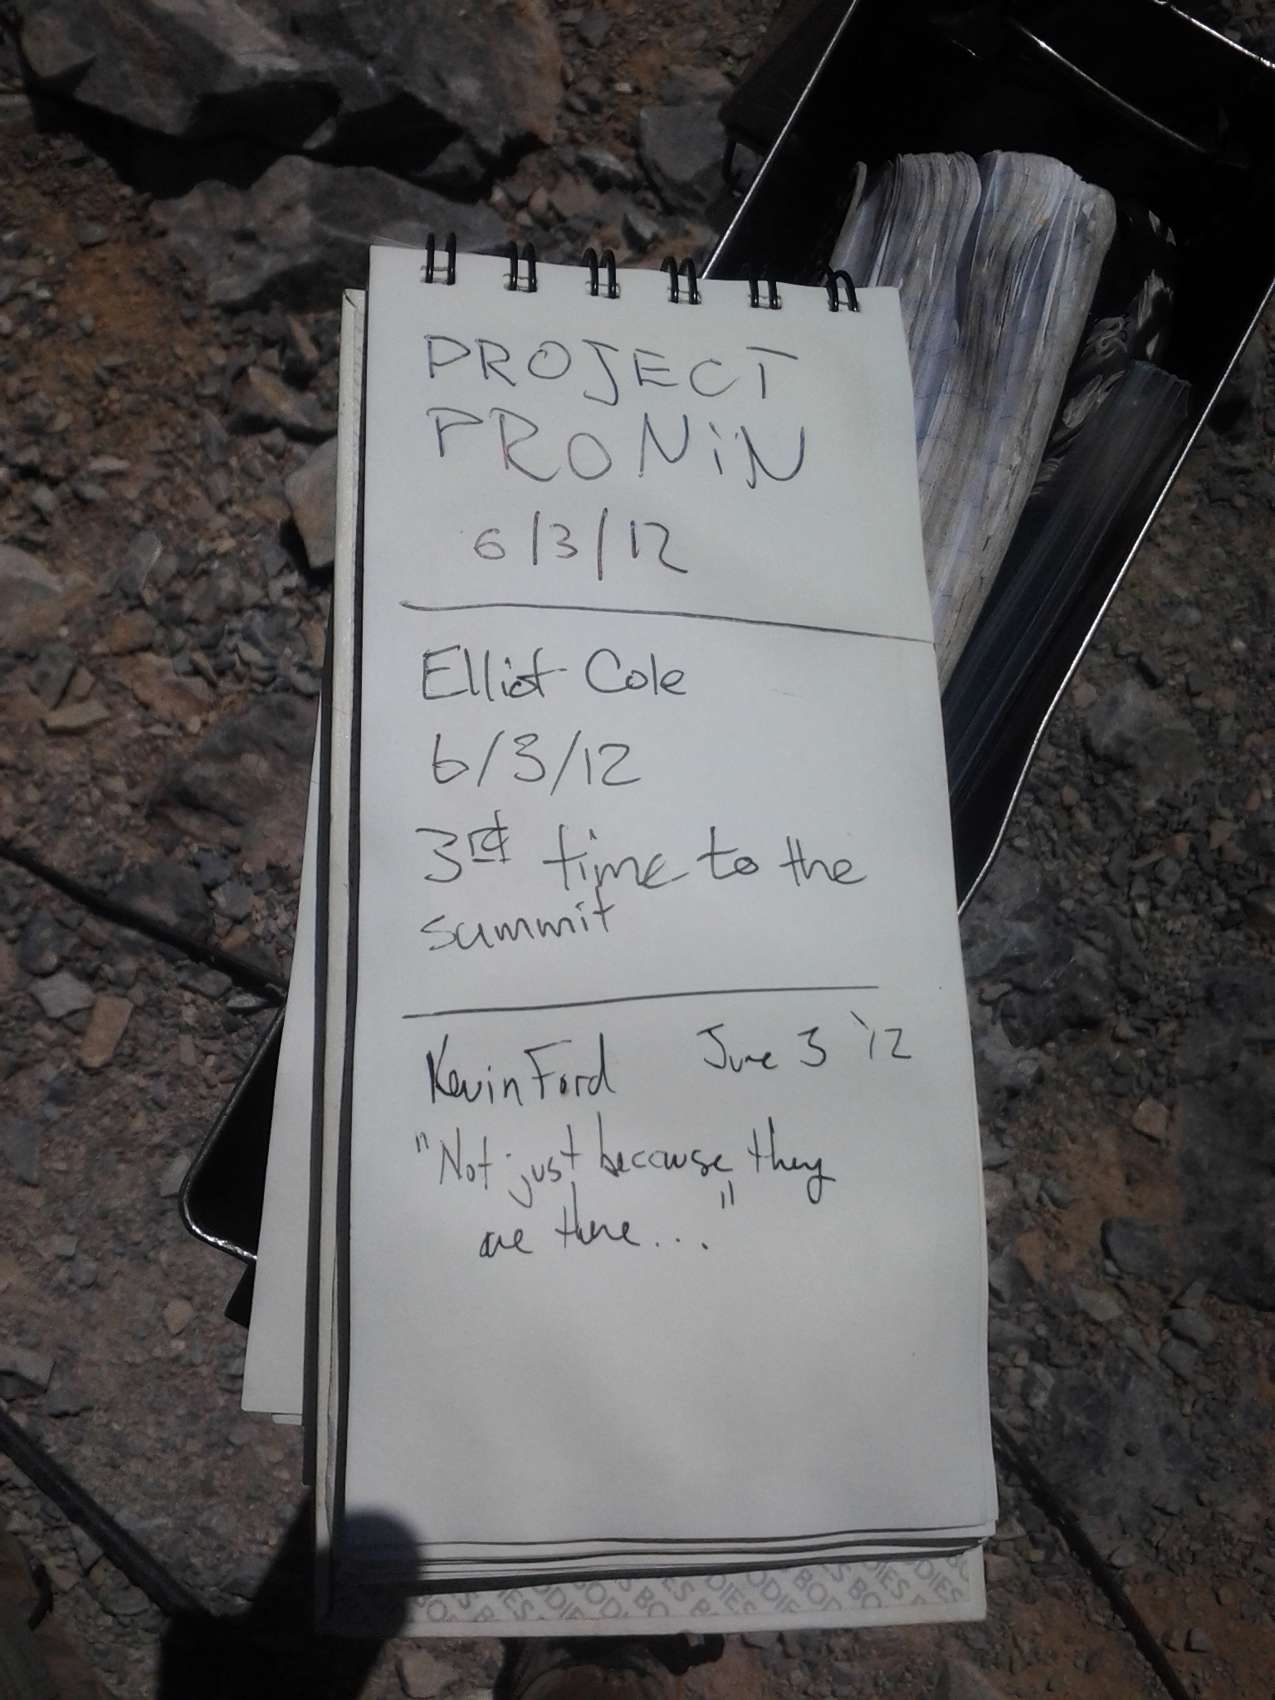 PROJECT
PRONIN
6/3/12
Elliot Cole
6/3/12
3rd time to the
summit
Kevin Ford June 3 '12
"Not just because they
are there..."
DIES BODIES BODIES BODIES BODIES